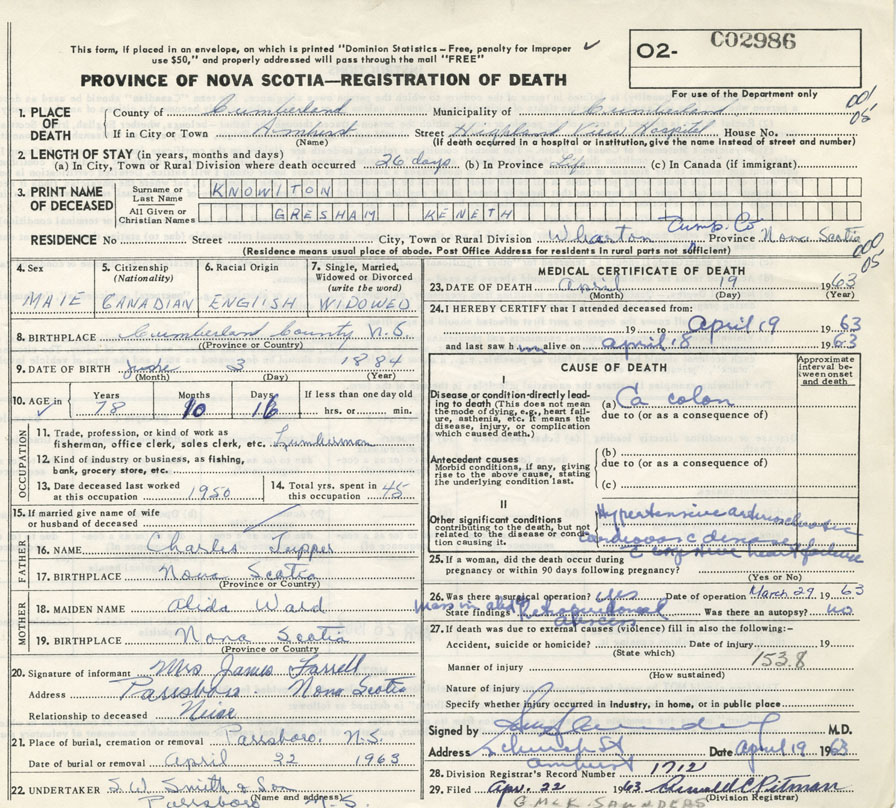 This form, if placed in an envelope, on which is printed "Dominion Statistics – Free, penalty for improper
use $50," and properly addressed will pass through the mail "FREE"
✓
O2- C02986
PROVINCE OF NOVA SCOTIA—REGISTRATION OF DEATH
For use of the Department only
1. PLACE OF DEATH
County of Cumberland Municipality of Cumberland
If in City or Town Amherst Street Highland View Hospital House No.
(Name) (If death occurred in a hospital or institution, give the name instead of street and number)
001
05
2. LENGTH OF STAY (in years, months and days)
(a) In City, Town or Rural Division where death occurred 26 days (b) In Province Life (c) In Canada (if immigrant)
3. PRINT NAME OF DECEASED
Surname or Last Name KNOWLTON
All Given or Christian Names GRESHAM KENETH
RESIDENCE No Street City, Town or Rural Division Wharton Cump. Co Province Nova Scotia
(Residence means usual place of abode. Post Office Address for residents in rural parts not sufficient)
000
05
4. Sex MALE
5. Citizenship (Nationality) CANADIAN
6. Racial Origin ENGLISH
7. Single, Married, Widowed or Divorced (write the word) WIDOWED
8. BIRTHPLACE Cumberland County N.S.
((Province or Country)
9. DATE OF BIRTH June 3 1884
(Month) (Day) (Year)
10. AGE in Years 78 Months 10 Days 16 If less than one day old
hrs. or min.
✓
OCCUPATION
11. Trade, profession or kind of work as
fisherman, office clerk, sales clerk, etc. Lumberman
12. Kind of industry or business, as fishing,
bank, grocery store, etc.
13. Date deceased last worked at this occupation 1950
14. Total yrs. spent in this occupation 45
15. If married give name of wife
or husband of deceased
FATHER
16. NAME Charles Tupper
17. BIRTHPLACE Nova Scotia
(Province or Country)
MOTHER
18. MAIDEN NAME Alida Ward
19. BIRTHPLACE Nova Scotia
(Province or Country)
20. Signature of informant Mrs James Farrell
Address Parrsboro Nova Scotia
Relationship to deceased Niece
21. Place of burial, cremation or removal Parrsboro, N.S.
Date of burial or removal April 22 1963
22. UNDERTAKER S.W. Smith & Son
(Name and address)
Parrsboro N.S.
MEDICAL CERTIFICATE OF DEATH
23. DATE OF DEATH April 19 1963
(Month) (Day) (Year)
24. I HEREBY CERTIFY that I attended deceased from:
19 to April 19 1963
and last saw him alive on april 18 1963
CAUSE OF DEATH
Approximate interval between onset and death
Disease or condition directly leading to death (This does not mean the mode of dying, e.g., heart failure, asthenia, etc. It means the disease, injury, or complication which caused death.)
(a) Ca colon
due to (or as a consequence of)
Antecedent causes
Morbid conditions, if any, giving rise to the above cause, stating the underlying condition last.
(b)
due to (or as a consequence of)
(c)
II
Other significant conditions
contributing to the death, but not related to the disease or condition causing it.
Hypertensive arteriosclerotic
cardiovasc disease
c congestive heart failure
25. If a woman, did the death occur during
pregnancy or within 90 days following pregnancy?
(Yes or No)
26. Was there a surgical operation? yes Date of operation March 29 1963
State findings mass in abd Retroperitoneal abscess Was there an autopsy? no
27. If death was due to external causes (violence) fill in also the following:–
Accident, suicide or homicide? Date of injury 19
(State which)
Manner of injury 153.8
(How sustained)
Nature of injury
Specify whether injury occurred in industry, in home, or in public place
Signed by M.D.
Address Church St Date April 19 1963
amherst
28. Division Registrar's Record Number 1712
29. Filed Apr. 22 1963 Donald C Pitman
(Division Registrar)
G MCK SAUNDERS